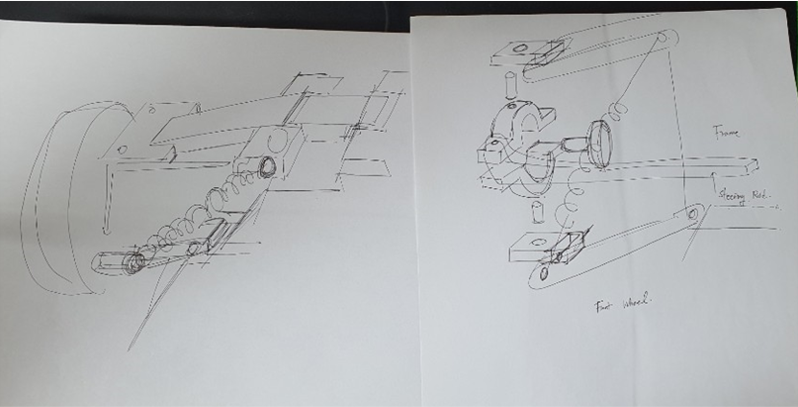 Frame
Steering Rod.
Front wheel.